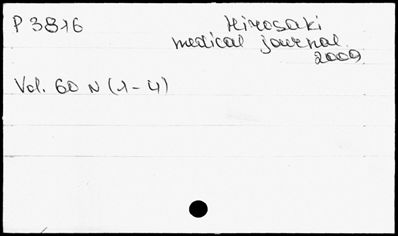 P 3816 Hirosaki
medical journal
2009
Vol. 60 N (1-4)